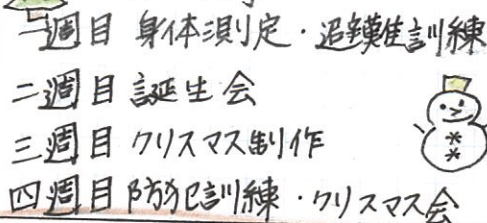 一週目 身体測定・避難訓練
二週目 誕生会
三週目 クリスマス制作
四週目 防犯訓練・クリスマス会